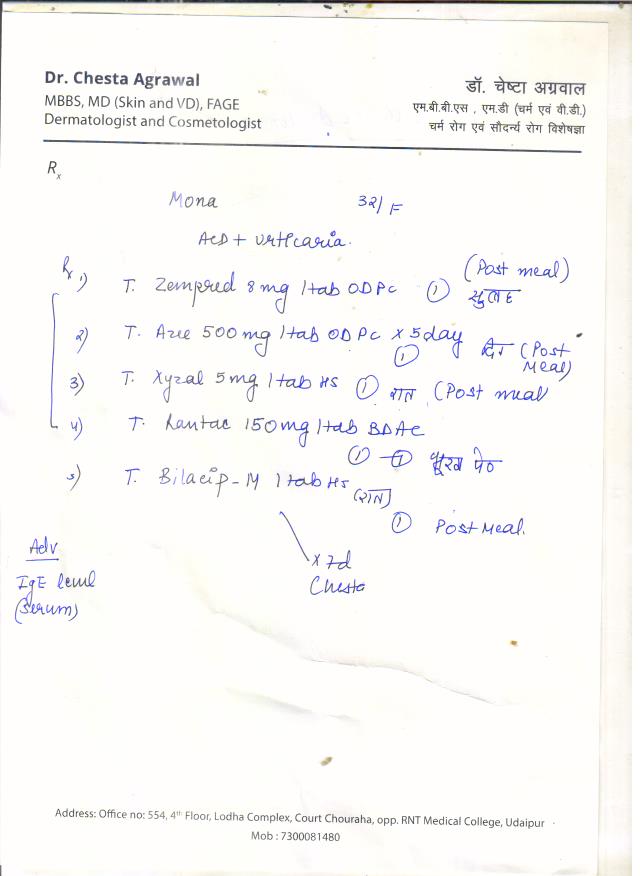 Dr. Chesta Agrawal
MBBS, MD (Skin and VD), FAGE
Dermatologist and Cosmetologist
डॉ. चेष्टा अग्रवाल
एम.बी.बी.एस , एम.डी (चर्म एवं वी.डी.)
चर्म रोग एवं सौदर्न्य रोग विशेषज्ञा
Rx
Mona 32/F
ACD + Urticaria.
Rx 1) T. Zempred 8 mg 1 tab OD PC ① (Post meal)
सुबह
2) T. Azee 500 mg 1 tab OD PC x 5 day
① दिन (Post Meal)
3) T. Xyzal 5 mg 1 tab HS ① रात (Post meal
4) T. Rantac 150 mg 1 tab BD AC
① ① भूखे पेट
5) T. Bilacip-M 1 tab HS
(रात)
① Post Meal.
x 7d
Chesta
Adv
IgE level
(Serum)
Address: Office no: 554, 4th Floor, Lodha Complex, Court Chouraha, opp. RNT Medical College, Udaipur
Mob : 7300081480